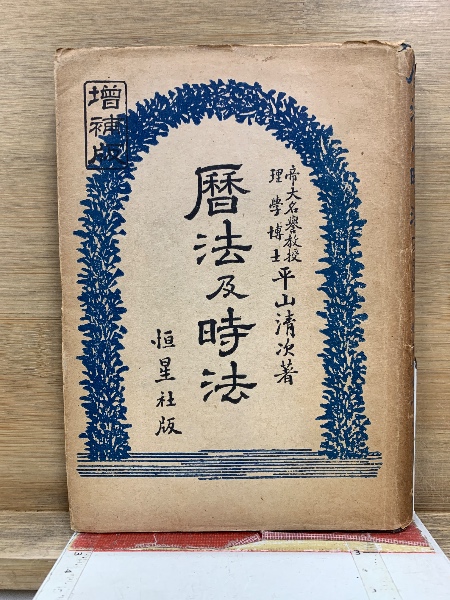 増補版
帝大名誉教授
理學博士
平山清次著
曆法及時法
恒星社版